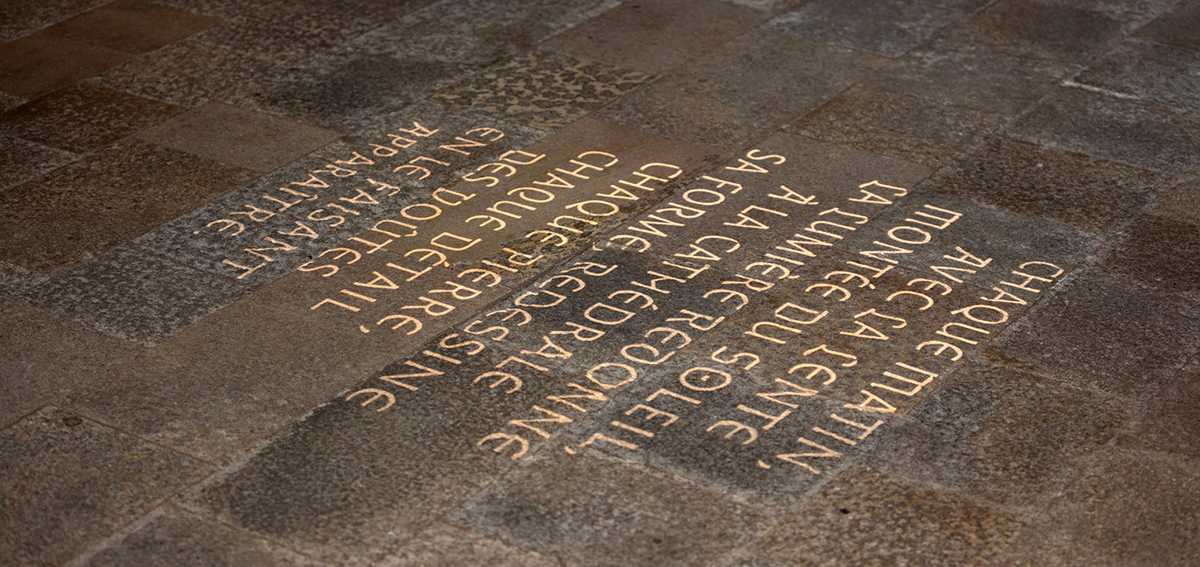 CHAQUE MATIN,
AVEC LA LENTE
MONTÉE DU SOLEIL,
LA LUMIÈRE REDONNE
À LA CATHÉDRALE
SA FORME, REDESSINE
CHAQUE PIERRE,
CHAQUE DÉTAIL
DES DOUTES
EN LE FAISANT
APPARAÎTRE.